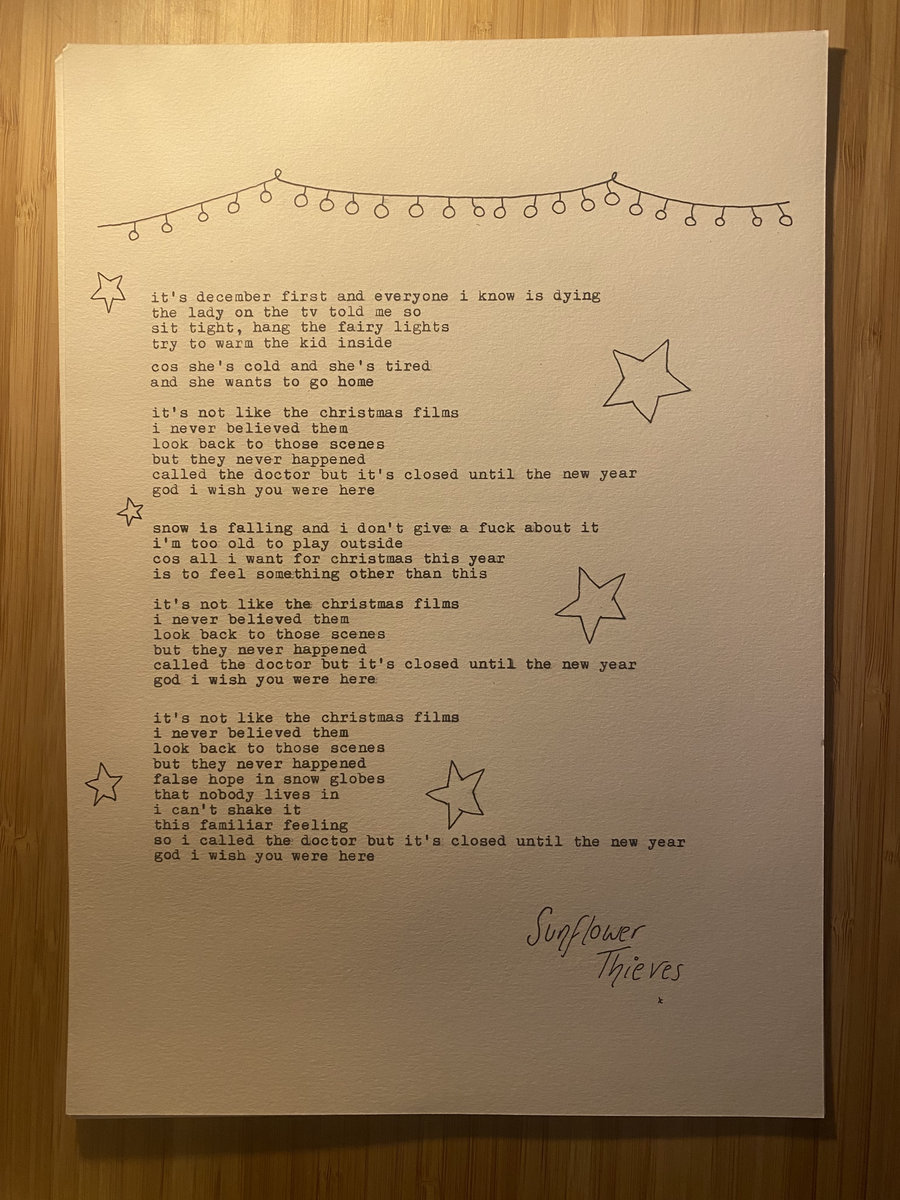 it's december first and everyone i know is dying
the lady on the tv told me so
sit tight, hang the fairy lights
try to warm the kid inside
cos she's cold and she's tired
and she wants to go home
it's not like the christmas films
i never believed them
look back to those scenes
but they never happened
called the doctor but it's closed until the new year
god i wish you were here
snow is falling and i don't give a fuck about it
i'm too old to play outside
cos all i want for christmas this year
is to feel something other than this
it's not like the christmas films
i never believed them
look back to those scenes
but they never happened
called the doctor but it's closed until the new year
god i wish you were here
it's not like the christmas films
i never believed them
look back to those scenes
but they never happened
false hope in snow globes
that nobody lives in
i can't shake it
this familiar feeling
so i called the doctor but it's closed until the new year
god i wish you were here
Sunflower
Thieves
x